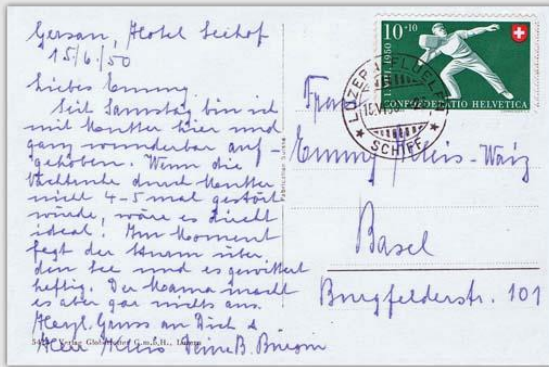 Gersau, Hotel Seehof
15/6/50
Liebes Emmy.
Seit Samstag bin ich
mit Mutter hier und
ganz wunderbar auf-
gehoben. Wenn die
Nachtruhe durch Mutter
nicht 4-5 mal gestört
würde, wäre es direkt
ideal. Im Moment
fegt der Sturm über
den See und es gewittert
heftig. Der Mama macht
es aber gar nichts aus.
Herzl. Gruss an Dich &
Deine B.
Verlag Globetrotter G.m.b.H., Luzern
10+10
1.VIII.1950
CONFOEDERATIO HELVETICA
LUZERN-FLÜELEN
SCHIFF
Emmy
Basel
Burgfelderstr. 101